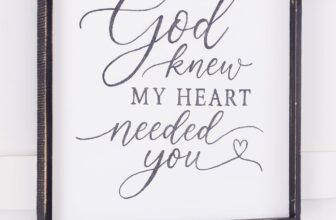 God
knew
MY HEART
needed
you